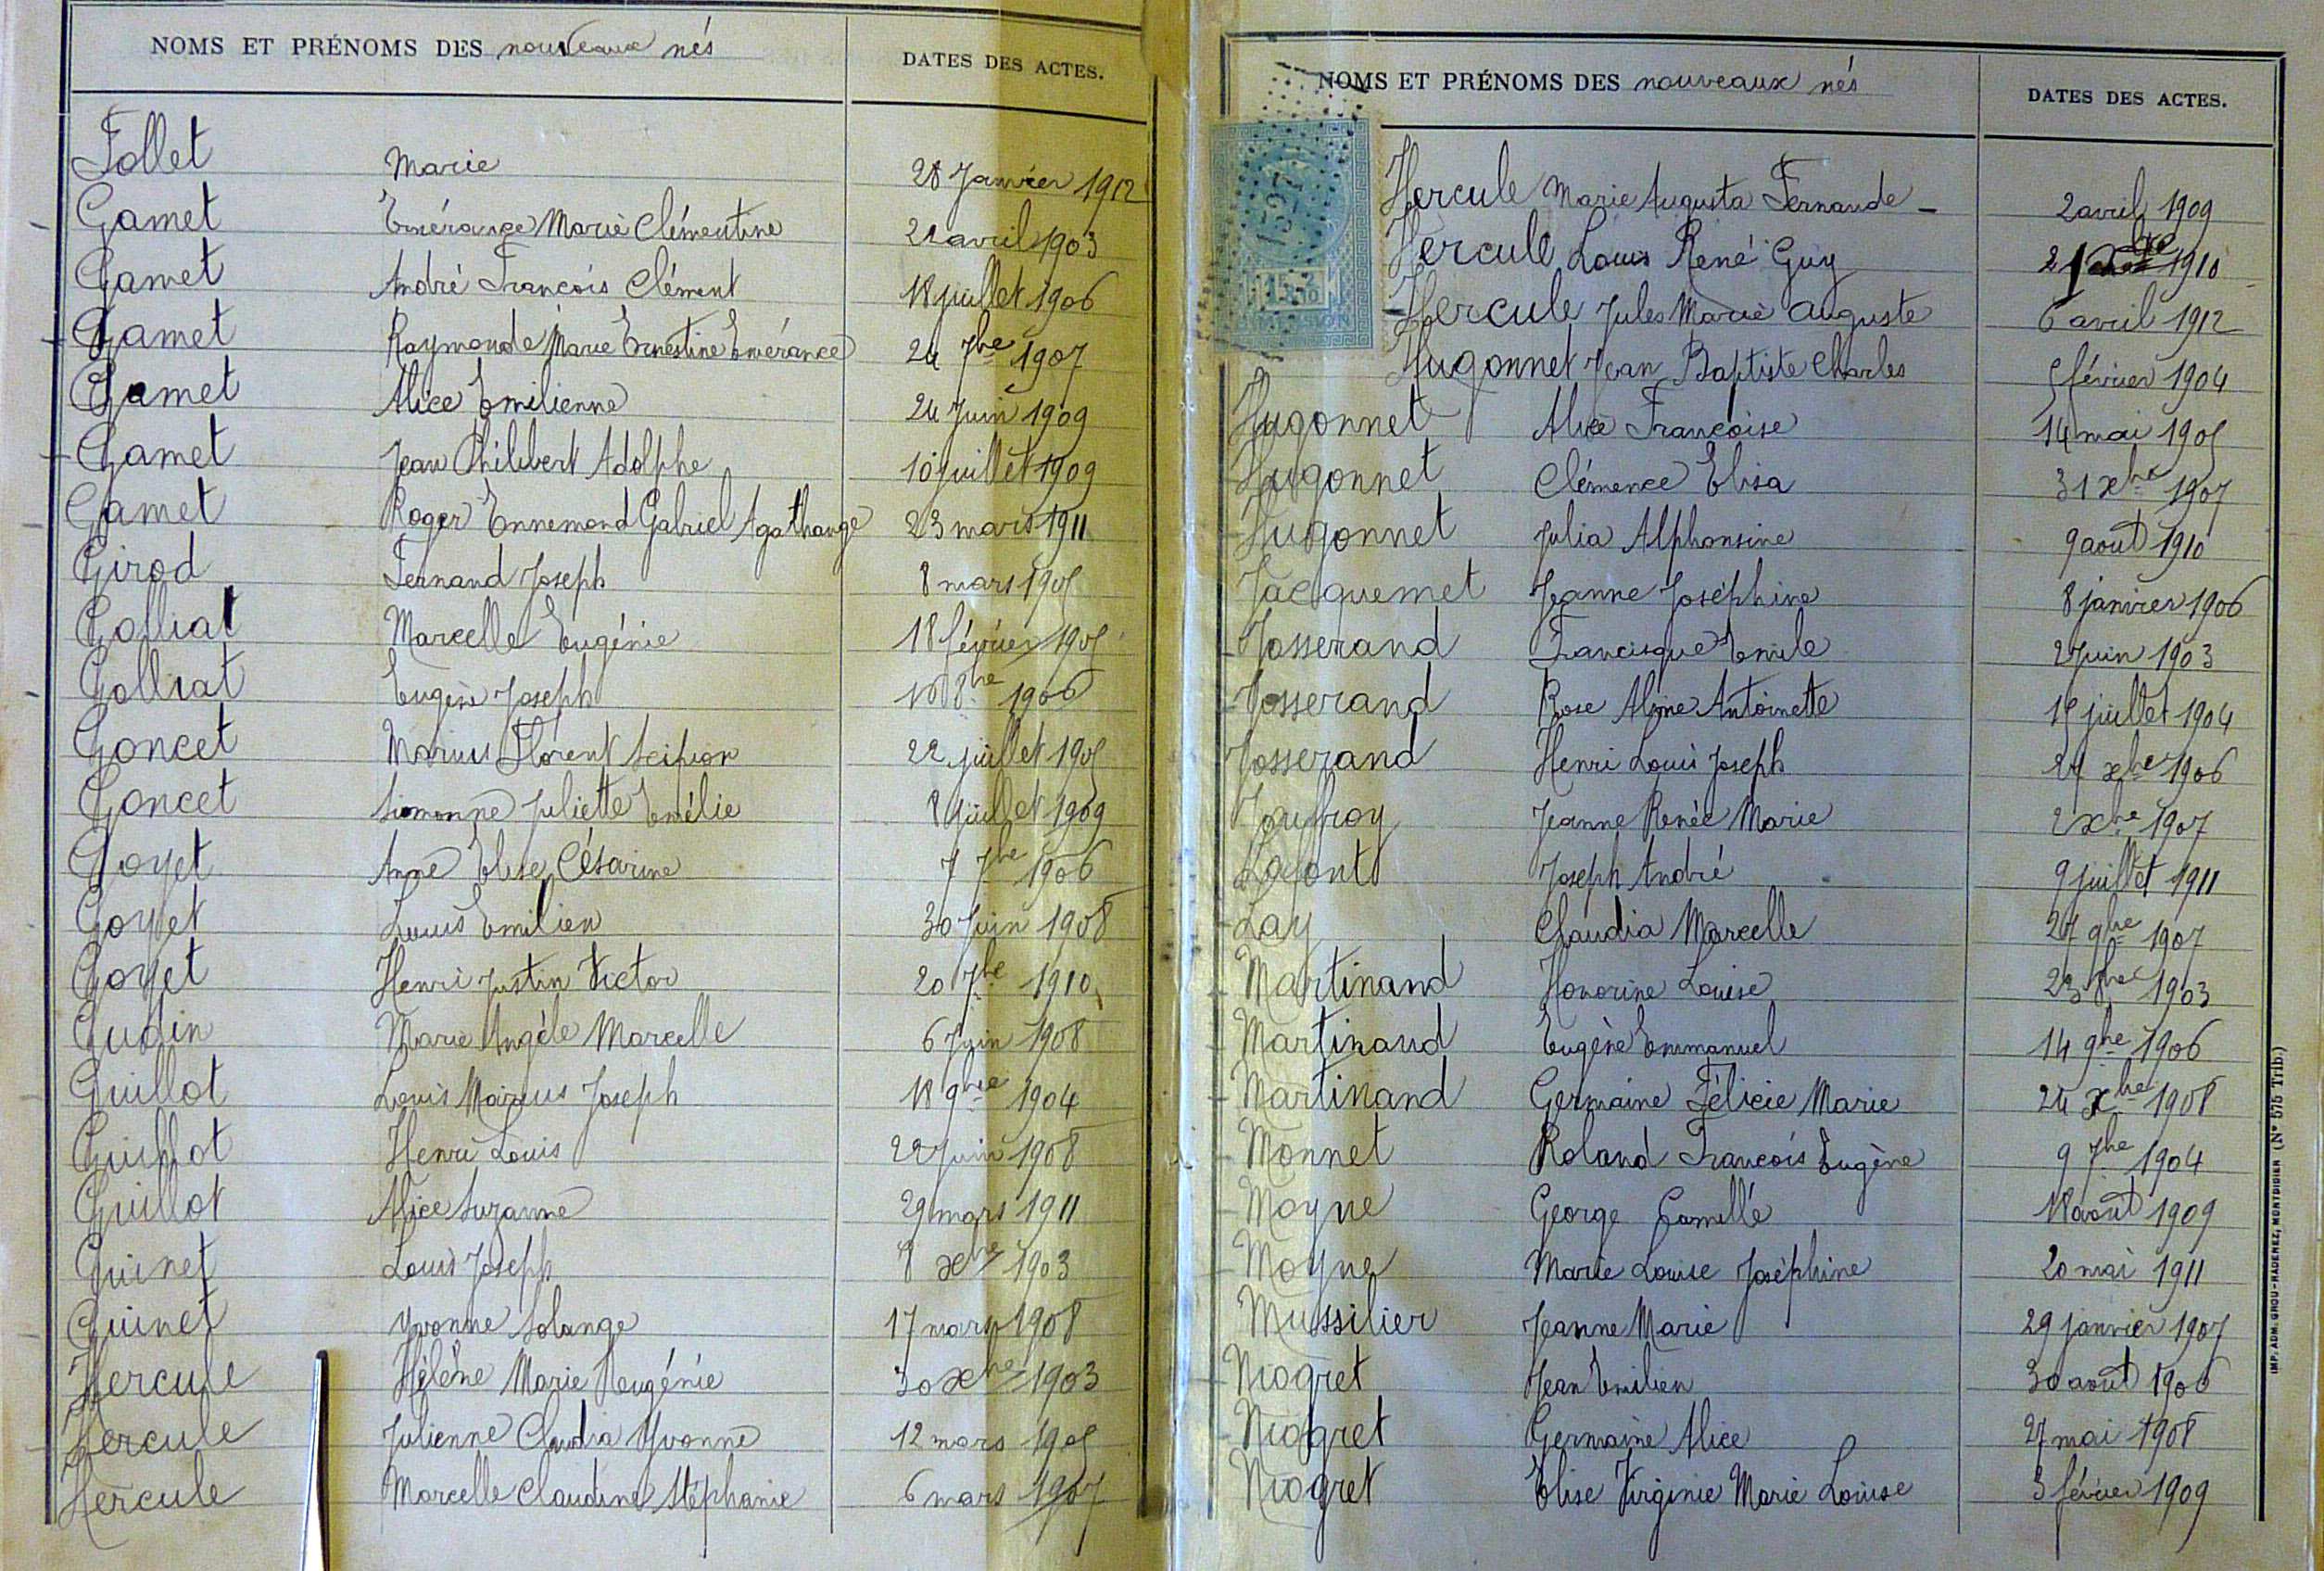 NOMS ET PRÉNOMS DES nouveaux nés DATES DES ACTES.
Follet Marie 28 Janvier 1912
Gamet Emérance Marie Clémentine 21 avril 1903
Gamet André François Clément 18 juillet 1906
Gamet Raymonde Marie Ernestine Emérance 24 7bre 1907
Gamet Alice Emilienne 24 Juin 1909
Gamet Jean Philibert Adolphe 10 juillet 1909
Gamet Roger Ennemond Gabriel Agathange 23 mars 1911
Girod Fernand Joseph 8 mars 1905
Golliat Marcelle Eugénie 18 février 1905
Golliat Eugène Joseph 8bre 1906
Goncet Marius Florent Scipion 22 juillet 1905
Goncet Simonne Juliette Emélie 8 juillet 1909
Goyet Anne Elise Césarine 7 7bre 1906
Goyet Louis Emilien 30 Juin 1908
Goyet Henri Justin Victor 20 7bre 1910
Gudin Marie Angèle Marcelle 6 Juin 1908
Guillot Louis Marius Joseph 18 9bre 1904
Guillot Henri Louis 22 Juin 1908
Guillot Alice Suzanne 29 mars 1911
Guinet Louis Joseph 8 xbre 1903
Guinet Yvonne Solange 17 mars 1908
Hercule Hélène Marie Eugénie 30 xbre 1903
Hercule Julienne Claudia Yvonne 12 mars 1905
Hercule Marcelle Claudine Stéphanie 6 mars 1907
NOMS ET PRÉNOMS DES nouveaux nés DATES DES ACTES.
Hercule Marie Augusta Fernande - 2 avril 1909
Hercule Louis René Guy 21 1910
Hercule Jules Marie Auguste 6 avril 1912
Hugonnet Jean Baptiste Charles 5 février 1904
Hugonnet Alice Françoise 14 mai 1905
Hugonnet Clémence Elisa 31 xbre 1907
Hugonnet Julia Alphonsine 9 août 1910
Jacquemet Jeanne Joséphine 8 janvier 1906
Josserand Francisque Emile 2 Juin 1903
Josserand Rose Aline Antoinette 15 juillet 1904
Josserand Henri Louis Joseph xbre 1906
Joufroy Jeanne Renée Marie 2 xbre 1907
Lafont Joseph André 9 juillet 1911
Lay Claudia Marcelle 27 9bre 1907
Martinand Honorine Louise 23 1903
Martinand Eugène Emmanuel 14 9bre 1906
Martinand Germaine Félicie Marie 24 xbre 1908
Monnet Roland François Eugène 9 7bre 1904
Moyne George Camille 18 août 1909
Moyne Marie Louise Joséphine 20 mai 1911
Mussilier Jeanne Marie 29 janvier 1907
Niogret Jean Emilien 30 août 1906
Niogret Germaine Alice 27 mai 1908
Niogret Elise Virginie Marie Louise 3 février 1909
IMP. ADM. GROU-RADENEZ, MONTDIDIER (N° 575 Trib.)